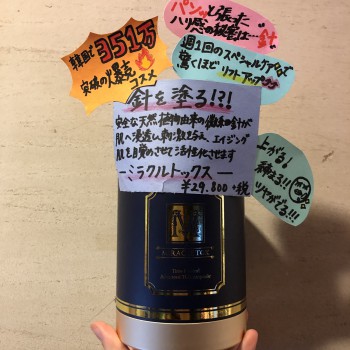 韓国で
351万
突破の爆売
コスメ
パンッと張った
ハリ感の秘密は…"針"
週1回のスペシャルケアで
驚くほどリフトアップ
針を塗る!?!
安全な天然植物由来の微細な針が
肌へ浸透し刺激を与え、エイジング
肌を目覚めさせて活性化させます
ーミラクルトックスー
¥29,800+税
上がる!
ツヤがでる!!!
MIRACLETOX